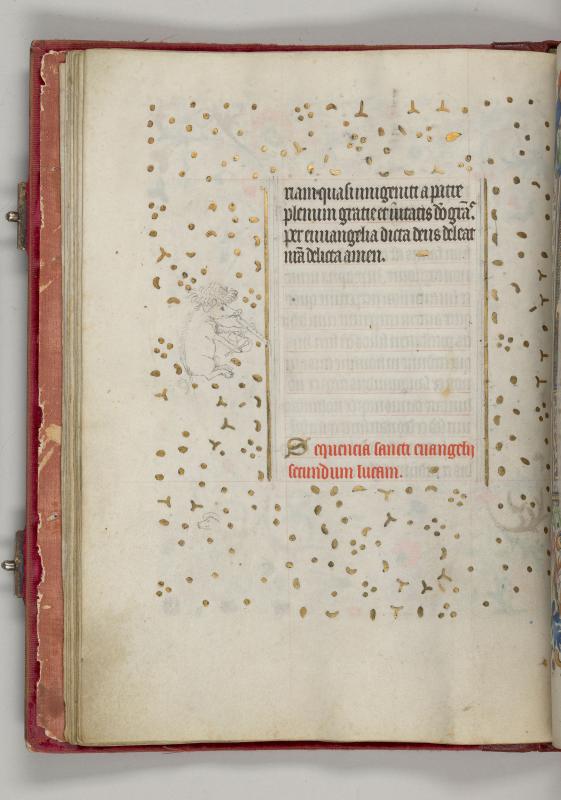 riam quasi unigeniti a patre
plenum gratie et ūitatis dō grā.
Per euuangelia dicta deus deleat
nrā delicta amen.
Sequencia sancti euangelij
secundum lucam.